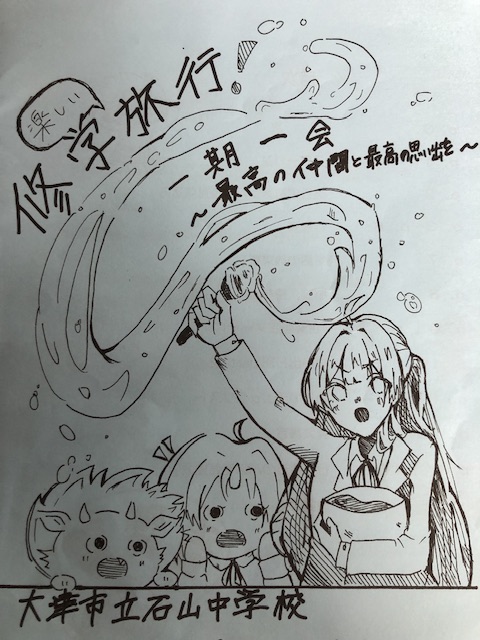 楽しい
修学旅行!
一期一会
～最高の仲間と最高の思い出を～
大津市立石山中学校